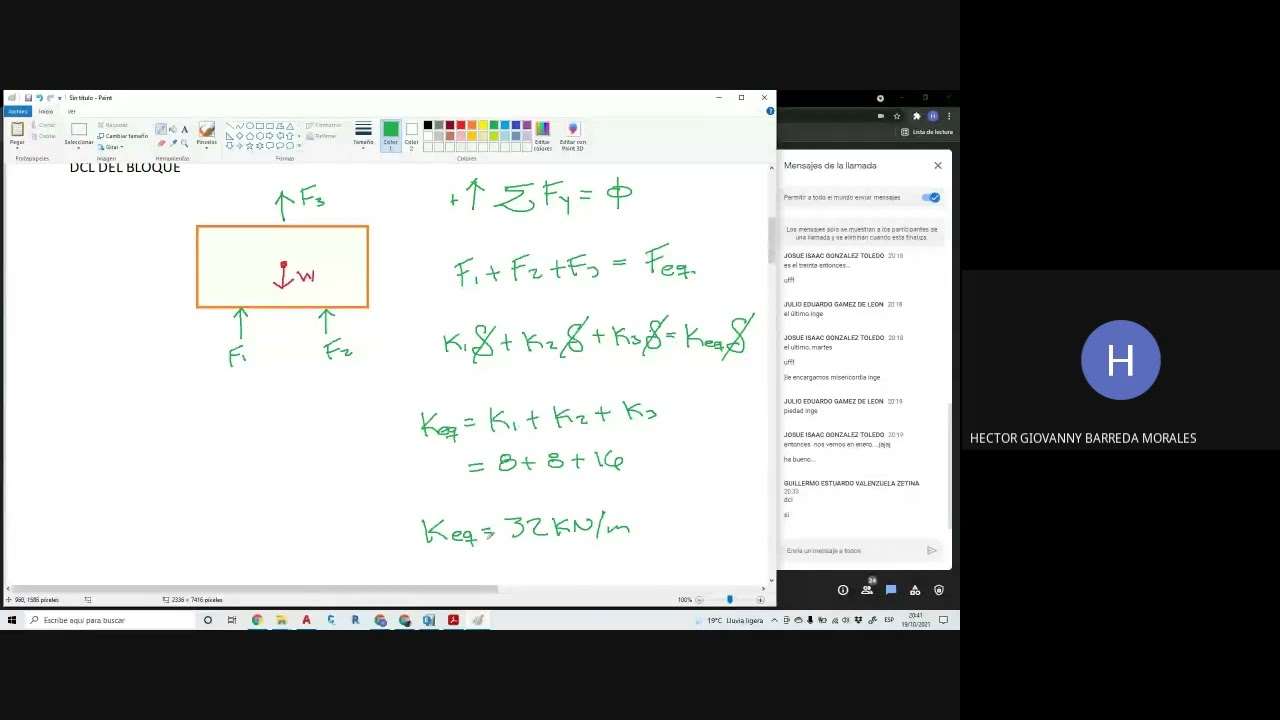 Sin título - Paint
Archivo Inicio Ver
Pegar
Cortar
Copiar
Portapapeles
Seleccionar
Recortar
Cambiar tamaño
Girar
Imagen
Pinceles
Herramientas
Contorno
Rellenar
Formas
Tamaño
Color 1
Color 2
Editar colores
Editar con Paint 3D
Colores
DCL DEL BLOQUE
F3
W
F1
F2
+↑ ΣFy = ϕ
F1 + F2 + F3 = Feq.
K1δ + K2δ + K3δ = Keqδ
Keq = K1 + K2 + K3
= 8 + 8 + 16
Keq = 32 KN/m
960, 1586 píxeles
2336 × 7416 píxeles
100%
Lista de lectura
Mensajes de la llamada
Permitir a todo el mundo enviar mensajes
Los mensajes solo se muestran a los participantes de
una llamada y se eliminan cuando esta finaliza.
JOSUE ISAAC GONZALEZ TOLEDO 20:18
es el treinta entonces...
ufff
JULIO EDUARDO GAMEZ DE LEON 20:18
el último inge
JOSUE ISAAC GONZALEZ TOLEDO 20:18
el ultimo, martes
ufff
le encargamos misericordia inge
JULIO EDUARDO GAMEZ DE LEON 20:19
piedad inge
JOSUE ISAAC GONZALEZ TOLEDO 20:19
entonces nos vemos en enero...jajaj
ha bueno...
GUILLERMO ESTUARDO VALENZUELA ZETINA
20:33
dcl
si
Envía un mensaje a todos
24
Escribe aquí para buscar
19°C Lluvia ligera
ESP
20:41
19/10/2021
H
HECTOR GIOVANNY BARREDA MORALES